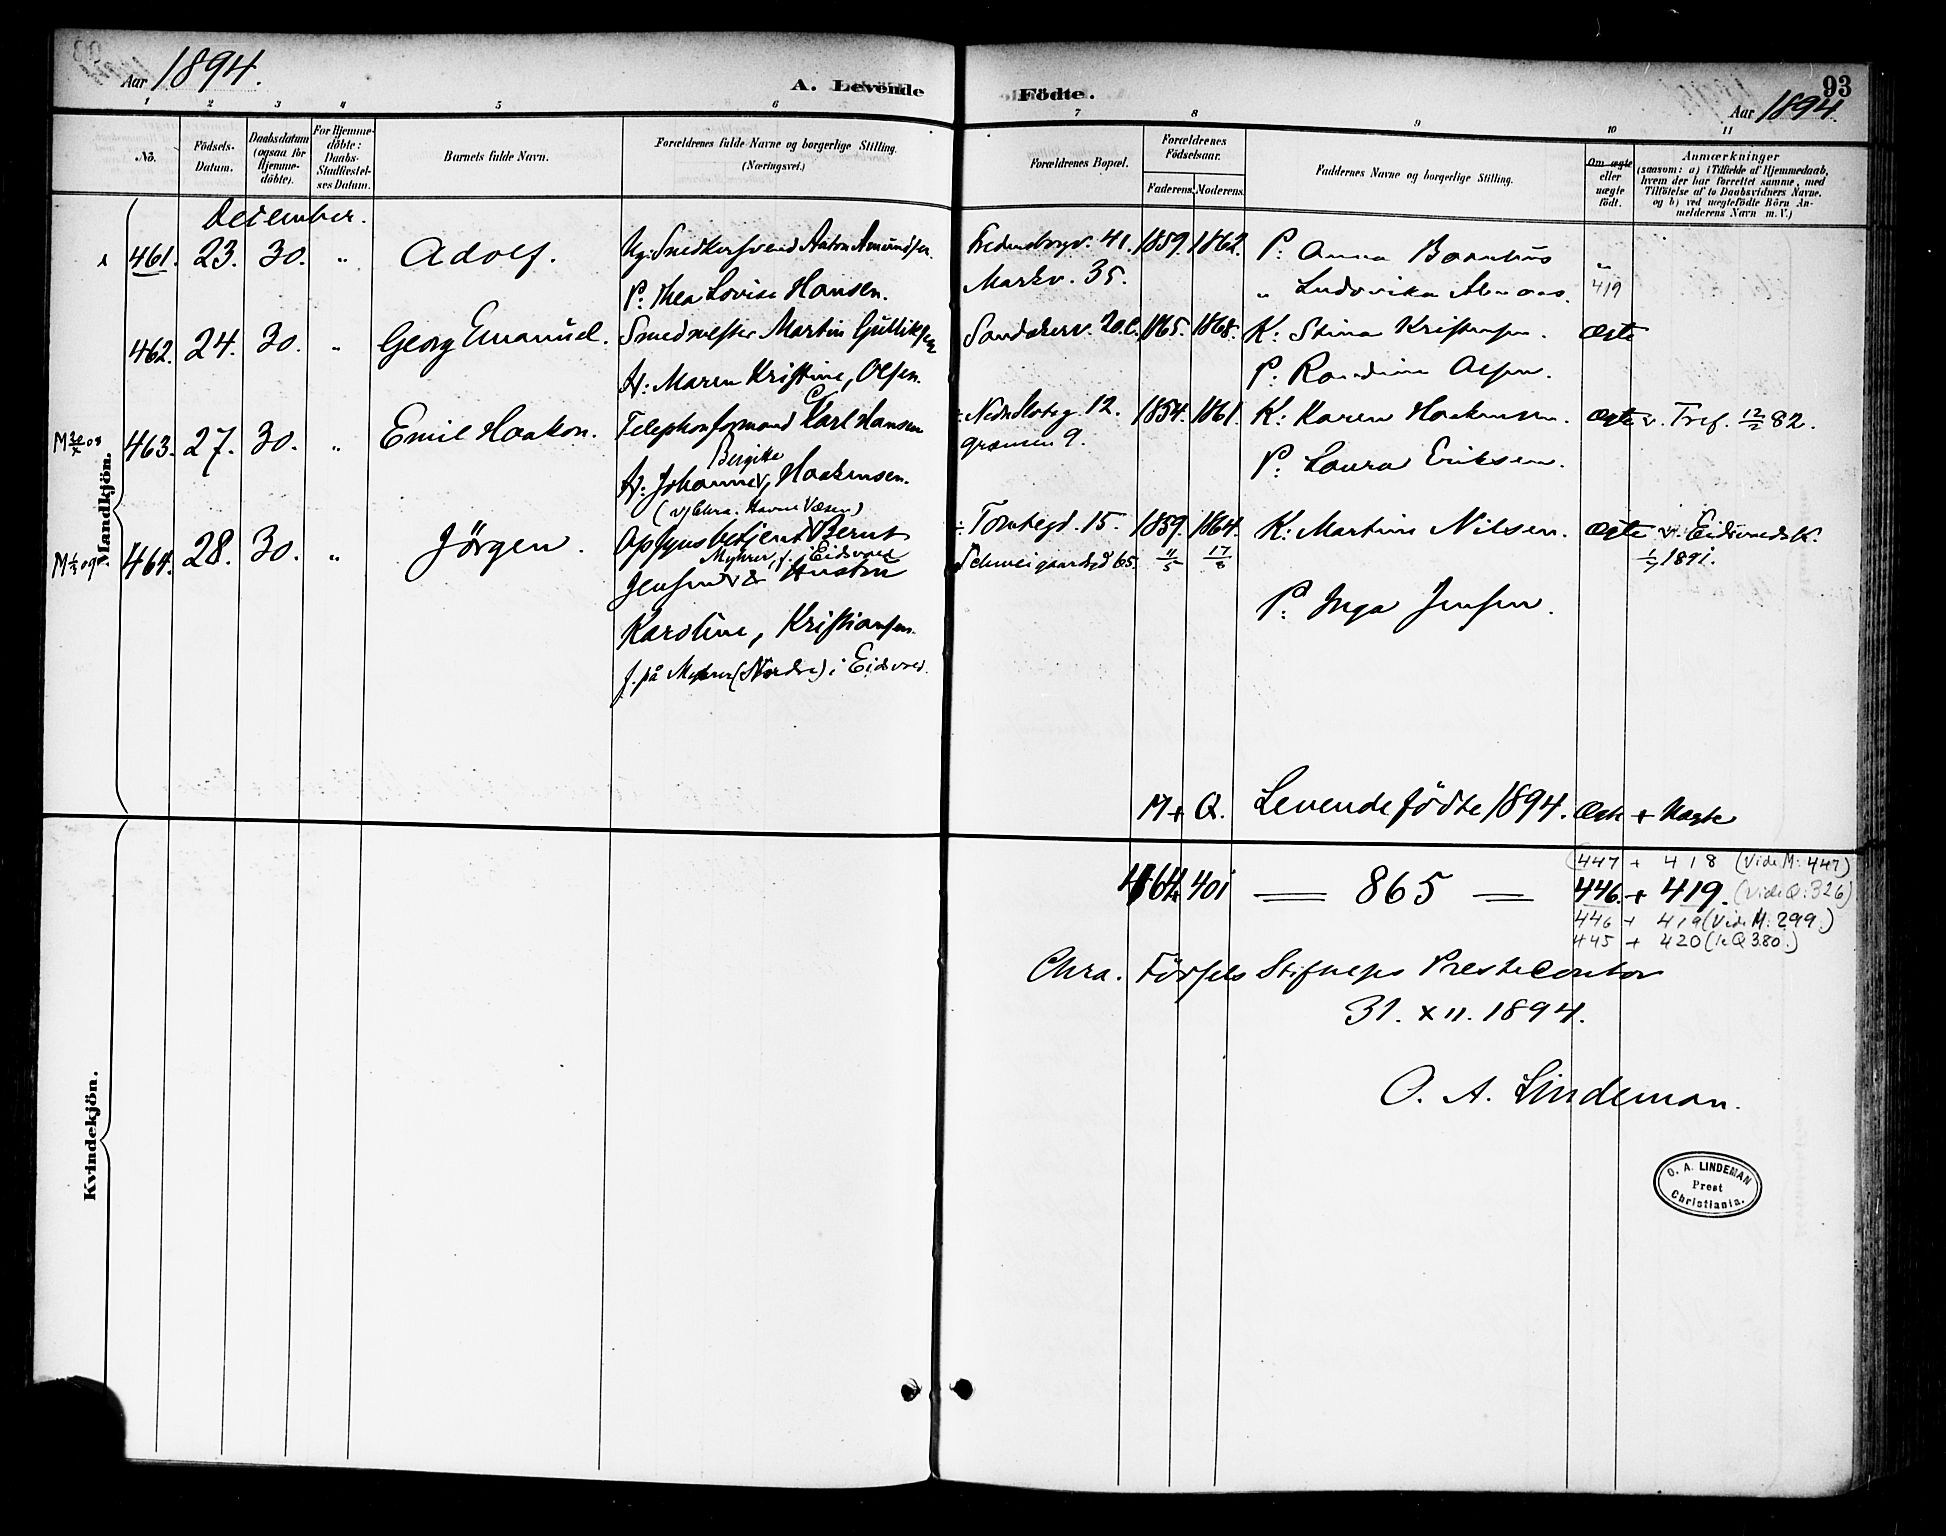 Aar 1894.
A. Levende Födte.
93
Aar 1894.
1 2 3 4 5 6 7 8 9 10 11
No.
Födsels-Datum.
Daabsdatum (ogsaa for Hjemme-döbte).
For Hjemme-döbte: Daabs-Stadfæstel-ses Datum.
Barnets fulde Navn.
Forældrenes fulde Navne og borgerlige Stilling. (Næringsvei.)
Forældrenes Bopæl.
Forældrenes Födselsaar.
Faderens. Moderens.
Faddernes Navne og borgerlige Stilling.
Om ægte eller uægte födt.
Anmærkninger
(saasom: a) i Tilfælde af Hjemmedaab, hvem der har forrettet samme, med Tilföielse af to Daabsvidners Navne, og b) ved uægtefödte Börn An-melderens Navn m. V.)
Mandkjön.
December.
461. 23. 30. „ Adolf. Ug: Snedkersvend Anton Amundsen. 41. 1859. 1862. P: Anna „
P: Thea Lovise Hansen. Markv. 35. „ Ludovika 419
462. 24. 30. „ Georg Emanuel. Smedmester Martin Gulliksen Sandakerv. 20.C. 1865. 1868. K: Stina Kristensen. Ægte
H: Maren Kristine, Olsen. P: Olsen.
463. 27. 30. „ Emil Haakon. Telephonformand Karl Hansen 12. 1854. 1861. K: Karen Haakensen. Ægte v. Tref. 12/2 82.
Bergitte Grænsen 9.
H: Johanne, Haakensen. P: Laura Eriksen.
(v/ Chra. Havne Væsen)
464. 28. 30. „ Jörgen. Opsynsbetjent Bernt Tomtegd. 15. 1859. 1864. K: Martin Nilsen. Ægte v. Eidsvold K.
Myhrer, f. i Eidsvold Schweigaardsgd 65. 11/5 17/8 1891.
Jensen & Hustru
P: Inga Jensen.
Karoline, Kristiansen.
f. på Myhrer (Nordre) i Eidsvold.
M + Q. Levende födte 1894. Ægte + Uægte
447 + 418 (Vide M: 447)
464 401 = 865 = 446. + 419. (Vide Q: 326)
446 + 419 (Vide M: 299.)
445 + 420 (Q 380.)
Chra. Födsels Stiftelses Prestecontor
31. XII. 1894.
O. A. Lindeman.
O. A. LINDEMAN
Prest
Christiania.
Kvindekjön.